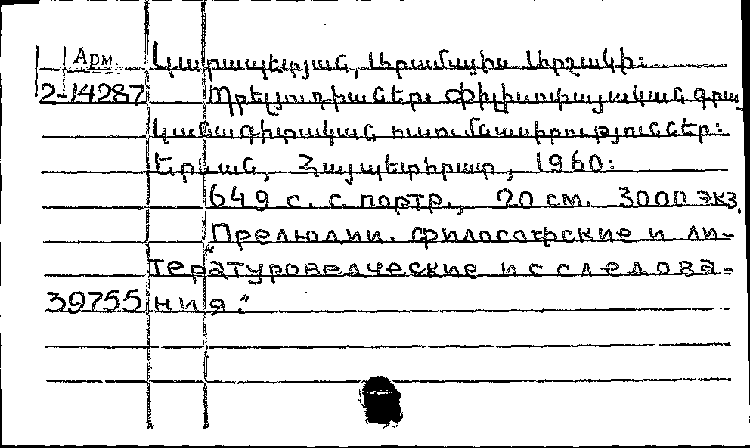 Арм Կարապետյան, Արամայիս Արշակի:
2-14287 Պրելյուդիաներ: Փիլիսոփայական գրա
կանագիտական ուսումնասիրություններ:
Երևան, Հայպետհրատ, 1960:
649 с. с портр., 20 см. 3000 экз.
"Прелюдии. философские и ли-
тературоведческие исследова-
39755 ния."